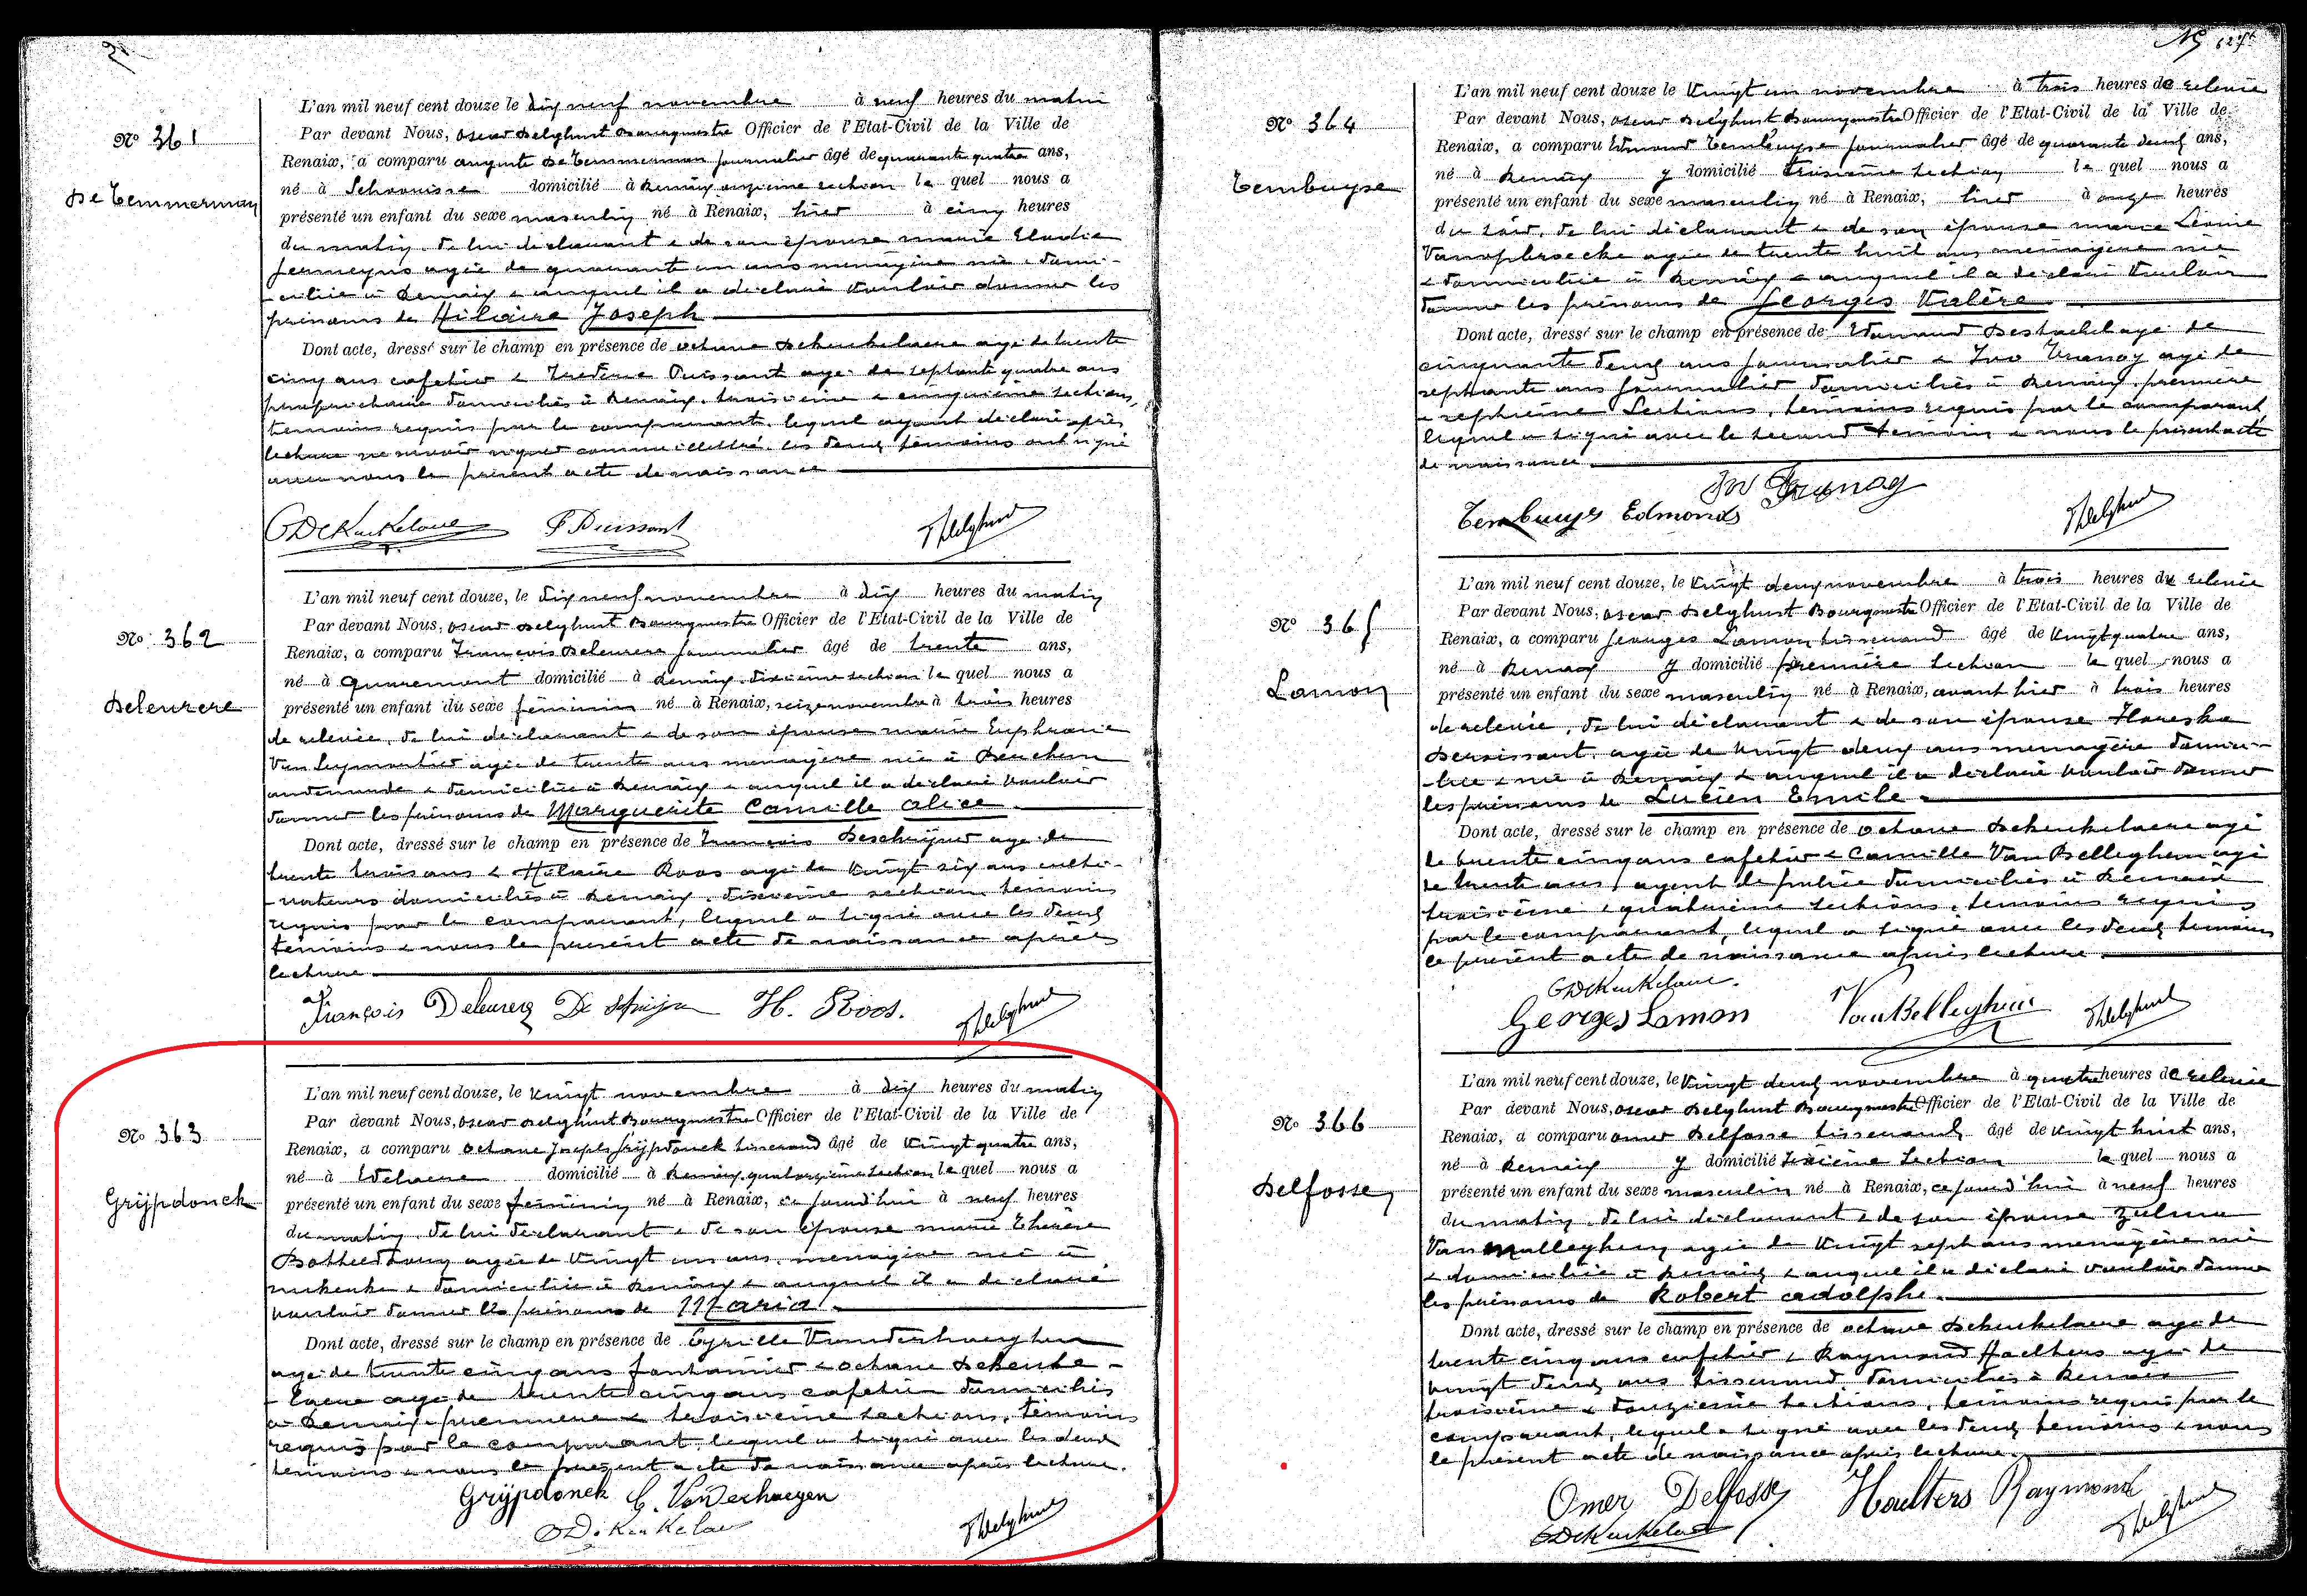 Nº 361
De Temmerman
L'an mil neuf cent douze le dix neuf novembre à neuf heures du matin
Par devant Nous, Oscar Delghust Bourgmestre Officier de l'Etat-Civil de la Ville de
Renaix, a comparu auguste De Temmerman journalier âgé de quarante quatre ans,
né à Schoorisse domicilié à Renaix onzième section le quel nous a
présenté un enfant du sexe masculin né à Renaix, hier à cinq heures
du matin, de lui déclarant & de son épouse marie Elodie
agée de quarante un ans menagère née & domi-
-ciliée à Renaix & auquel il a déclaré vouloir donner les
prénoms de Hilaire Joseph
Dont acte, dressé sur le champ en présence de octave Dekeukelaere agé de trente
cinq ans cafetier & Puissant agé de septante quatre ans
domiciliés à Renaix, troisième & cinquième sections,
témoins requis par le comparant, lequel ayant déclaré après
lecture ne savoir signer comme illettré, les deux témoins ont signé
avec nous le présent acte de naissance
ODeKeukelaere F Puissant
Nº 362
Deleurere
L'an mil neuf cent douze, le dix neuf novembre à dix heures du matin
Par devant Nous, Oscar Delghust Bourgmestre Officier de l'Etat-Civil de la Ville de
Renaix, a comparu François Deleurere journalier âgé de trente ans,
né à Quaremont domicilié à Renaix, dixième section le quel nous a
présenté un enfant du sexe féminin né à Renaix, seize novembre à trois heures
de relevée, de lui déclarant & de son épouse marie Euphrasie
agée de trente ans menagère née à
& domiciliée à Renaix & auquel il a déclaré vouloir
donner les prénoms de Marguerite Camille alice
Dont acte, dressé sur le champ en présence de François agé de
trente trois ans & Hilaire Roos agé de vingt six ans culti-
-vateurs domiciliés à Renaix, dixième section témoins
requis par le comparant, lequel a signé avec les deux
témoins & nous le présent acte de naissance après
lecture
François Deleurere H. Roos.
Nº 363
Grijpdonck
L'an mil neuf cent douze, le vingt novembre à dix heures du matin
Par devant Nous, Oscar Delghust Bourgmestre Officier de l'Etat-Civil de la Ville de
Renaix, a comparu octave Joseph Grijpdonck tisserand âgé de vingt quatre ans,
né à domicilié à Renaix, quatorzième section le quel nous a
présenté un enfant du sexe féminin né à Renaix, ce jourd'hui à neuf heures
du matin, de lui déclarant & de son épouse marie Thérèse
agée de vingt un ans, menagère née à
nukerke & domiciliée à Renaix & auquel il a déclaré
vouloir donner les prénoms de Maria
Dont acte, dressé sur le champ en présence de Cyrille Vanderhaeghen
agé de trente cinq ans fontainier & octave Dekeuke-
-laere agé de trente cinq ans cafetier domiciliés
à Renaix, première & troisième sections, témoins
requis par le comparant, lequel a signé avec les deux
témoins & nous le présent acte de naissance après lecture.
Grijpdonck C. Vanderhaegen
ODeKeukelaere
Nº 364
Tembuyse
L'an mil neuf cent douze le vingt un novembre à trois heures de relevée
Par devant Nous, Oscar Delghust Bourgmestre Officier de l'Etat-Civil de la Ville de
Renaix, a comparu Edmond Tembuyse journalier âgé de quarante deux ans,
né à Renaix y domicilié troisième section le quel nous a
présenté un enfant du sexe masculin né à Renaix, hier à onze heures
du soir, de lui déclarant & de son épouse marie Léonie
agée de trente huit ans menagère née
& domiciliée à Renaix & auquel il a déclaré vouloir
donner les prénoms de Georges Valère
Dont acte, dressé sur le champ en présence de Edmond agé de
cinquante deux ans journalier & Ivo agé de
septante ans journalier domiciliés à Renaix, première
& septième Sections, témoins requis par le comparant,
lequel a signé avec le second témoin & nous le présent acte
de naissance
Tembuyse Edmond
Nº 365
Lamon
L'an mil neuf cent douze, le vingt deux novembre à trois heures de relevée
Par devant Nous, Oscar Delghust Bourgmestre Officier de l'Etat-Civil de la Ville de
Renaix, a comparu Georges Lamon tisserand âgé de vingt quatre ans,
né à Renaix y domicilié première section le quel nous a
présenté un enfant du sexe masculin né à Renaix, avant hier à trois heures
de relevée, de lui déclarant & de son épouse
agée de vingt deux ans menagère domici-
-liée & née à Renaix & auquel il a déclaré vouloir donner
les prénoms de Lucien Emile
Dont acte, dressé sur le champ en présence de octave Dekeukelaere agé
de trente cinq ans cafetier & Camille Van Belleghem agé
de trente ans, agent de police domiciliés à Renaix
troisième & quatrième sections, témoins requis
par le comparant, lequel a signé avec les deux témoins
le présent acte de naissance après lecture
ODeKeukelaere.
Georges Lamon VanBelleghem
Nº 366
Delfosse
L'an mil neuf cent douze, le vingt deux novembre à quatre heures de relevée
Par devant Nous, Oscar Delghust Bourgmestre Officier de l'Etat-Civil de la Ville de
Renaix, a comparu omer Delfosse tisserand âgé de vingt huit ans,
né à Renaix y domicilié section le quel nous a
présenté un enfant du sexe masculin né à Renaix, ce jourd'hui à neuf heures
du matin, de lui déclarant & de son épouse Zulma
Van Malleghem agée de vingt sept ans menagère née
& domiciliée à Renaix & auquel il a déclaré vouloir donner
les prénoms de Robert adolphe.
Dont acte, dressé sur le champ en présence de octave Dekeukelaere agé de
trente cinq ans cafetier & Raymond Haelters agé de
vingt deux ans tisserand domiciliés à Renaix
troisième & douzième sections, témoins requis par le
comparant, lequel a signé avec les deux témoins & nous
le présent acte de naissance après lecture.
Omer Delfosse Haelters Raymond
ODeKeukelaere